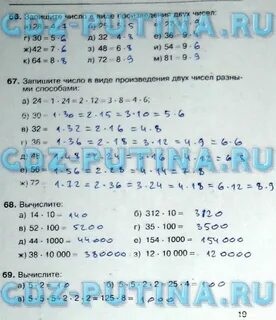 66. Запишите число в виде произведения двух чисел:
г) 30 = 5 · 6 д) 32 = 4 · 8 е) 36 = 4 · 9
ж) 42 = 7 · 6 з) 48 = 6 · 8 и) 54 = 9 · 6
к) 64 = 8 · 8 л) 72 = 8 · 9 м) 81 = 9 · 9
67. Запишите число в виде произведения двух чисел разны-
ми способами:
а) 24 = 1 · 24 = 2 · 12 = 3 · 8 = 4 · 6;
б) 30 = 1·30 = 2·15 = 3·10 = 5·6
в) 32 = 1·32 = 2·16 = 4·8
г) 36 = 1·36 = 2·18 = 3·12 = 4·9 = 6·6
ж) 72 = 1·72 = 2·36 = 3·24 = 4·18 = 6·12 = 8·9
GDZ-PUTINA.RU
68. Вычислите:
а) 14 · 10 = 140 б) 312 · 10 = 3120
в) 52 · 100 = 5200 г) 35 · 100 = 3500
д) 44 · 1000 = 44000 е) 154 · 1000 = 154000
ж) 38 · 10 000 = 380000 з) 12 · 10 000 = 120000
69. Вычислите:
а) 5 · 2 = 10 б) 5 · 5 · 2 · 2 = 25 · 4 = 100
в) 5 · 5 · 5 · 2 · 2 · 2 = 125 · 8 = 1000
GDZ-PUTINA.RU
19